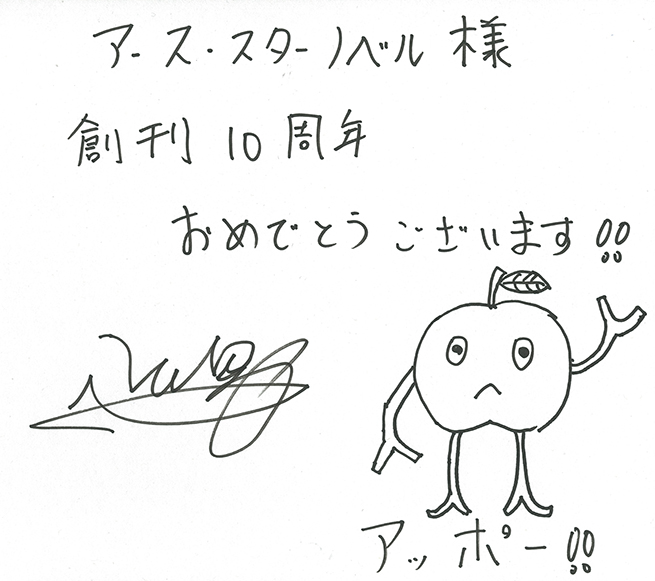 アース・スターノベル様
創刊10周年
おめでとうございます!!
アッポー!!